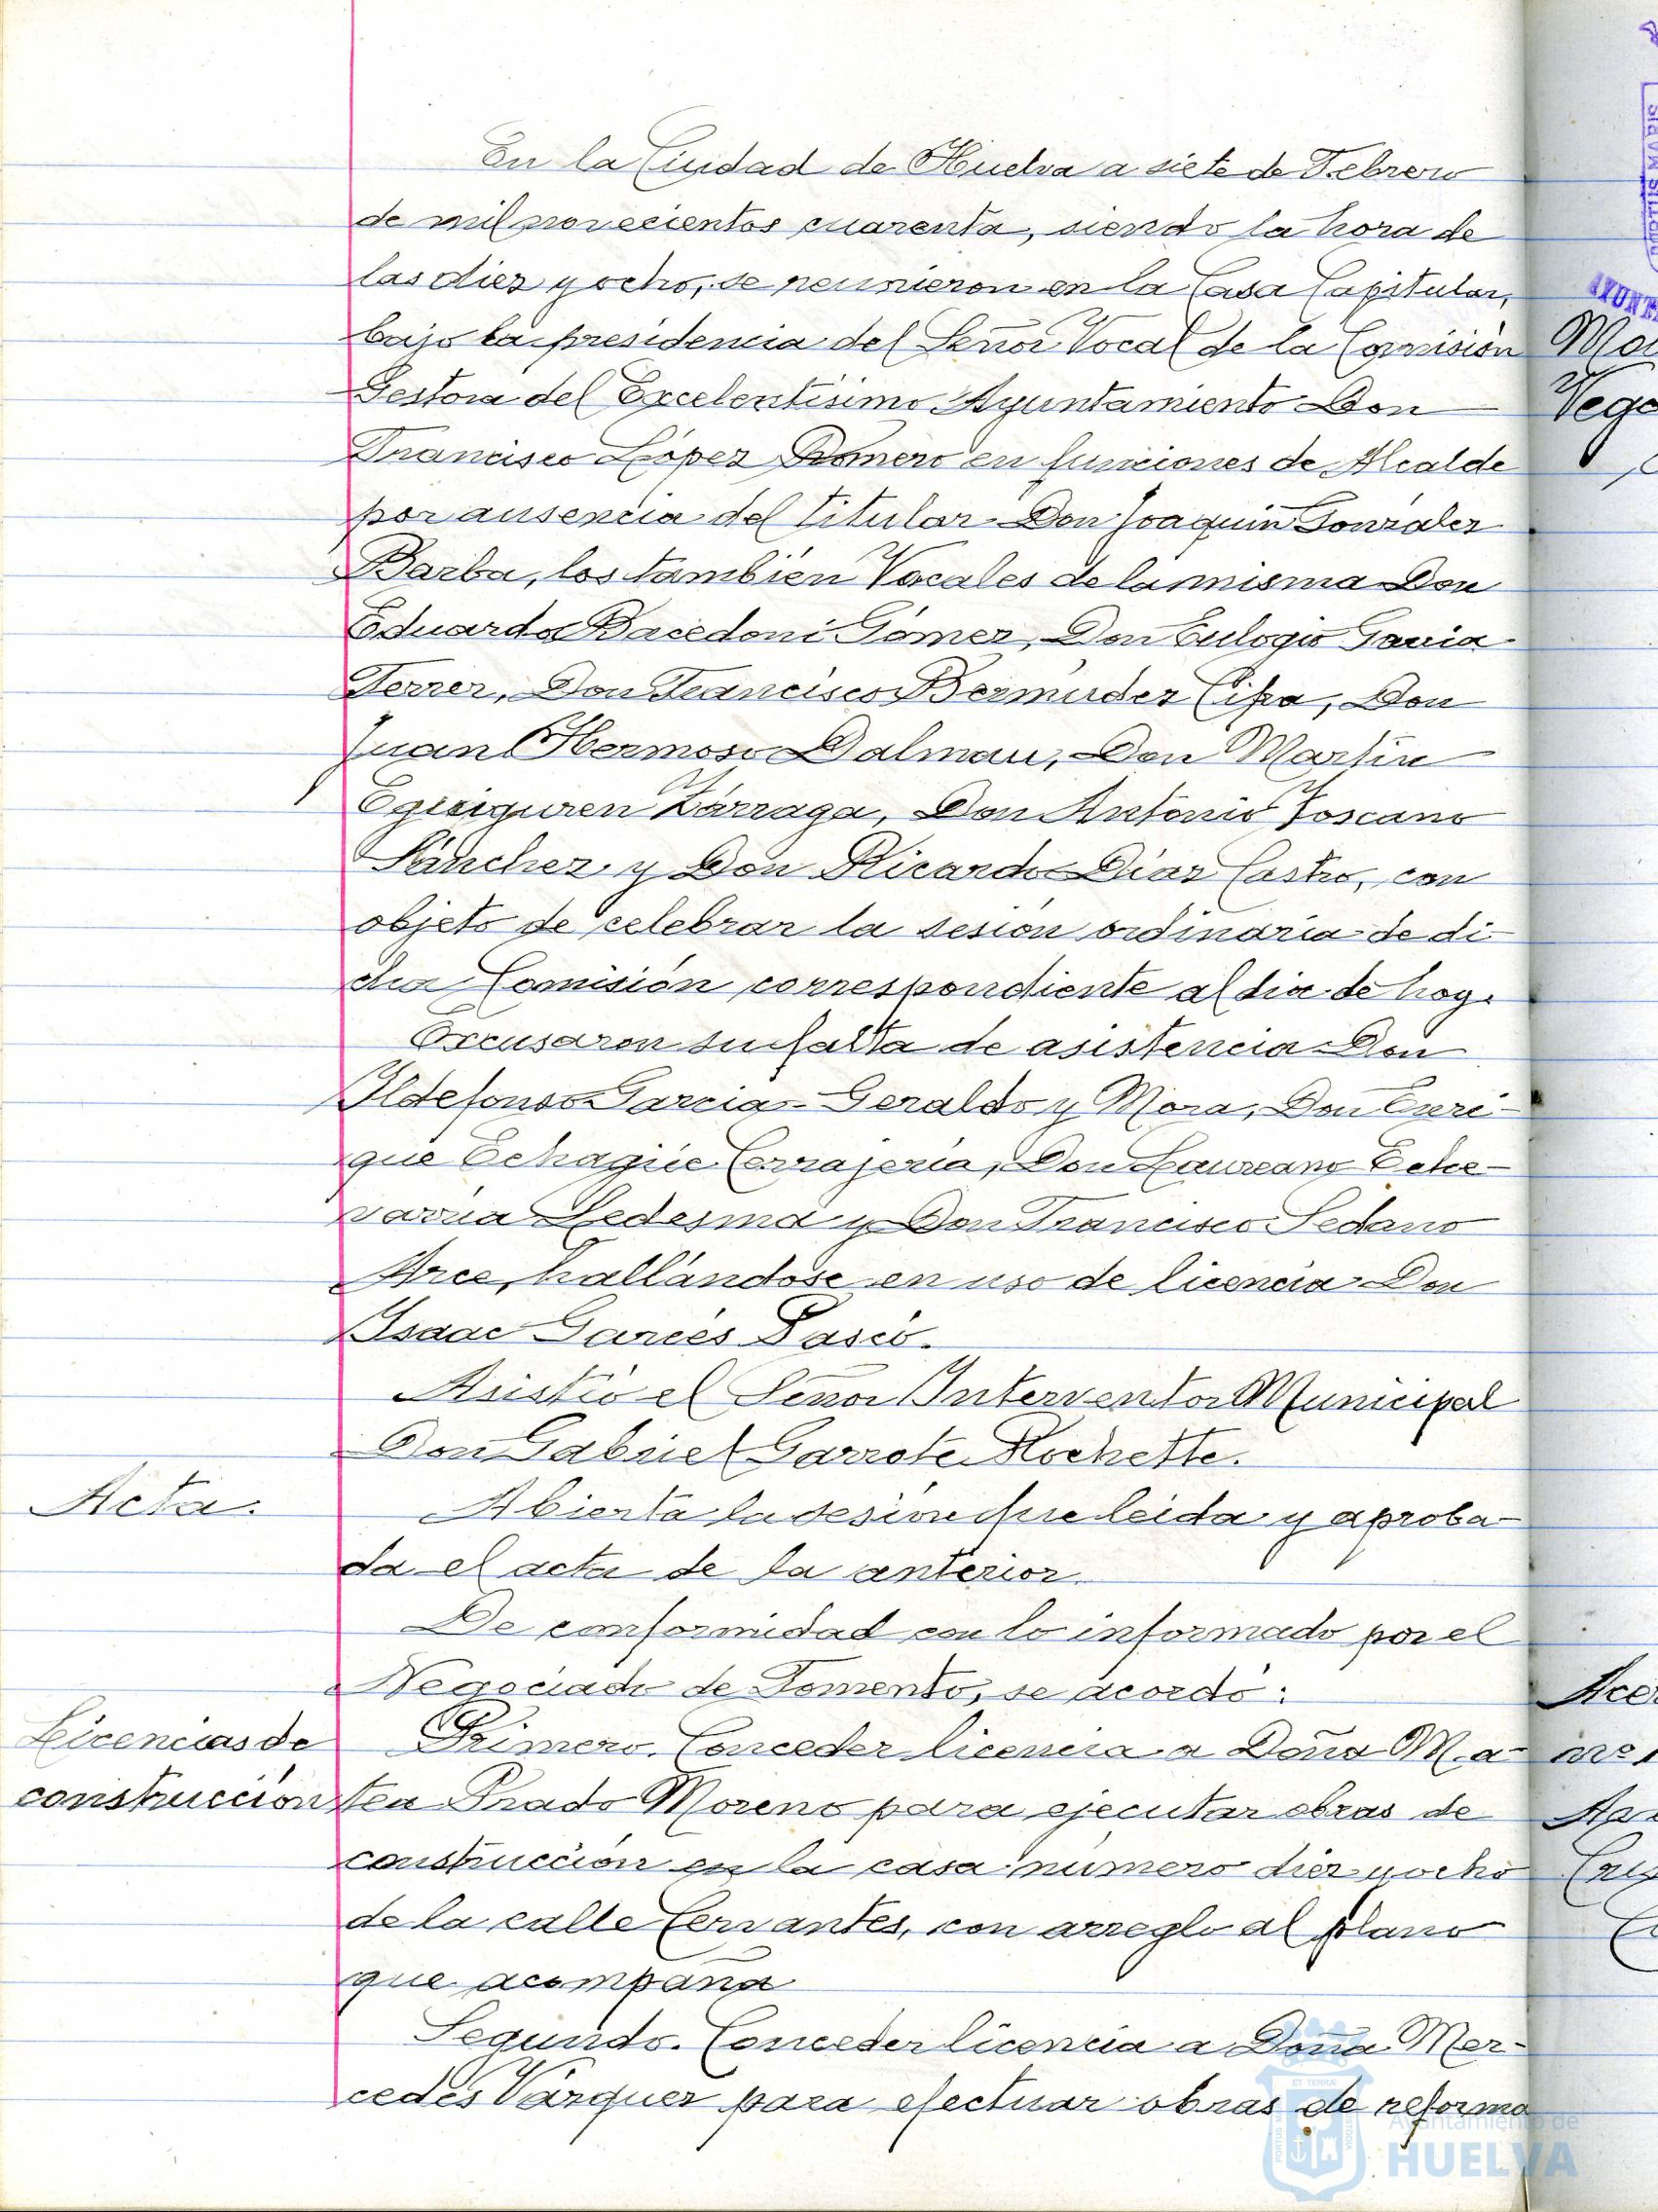 En la Ciudad de Huelva a siete de Febrero
de mil novecientos cuarenta, siendo la hora de
las diez y ocho, se reunieron en la Casa Capitular,
bajo la presidencia del Señor Vocal de la Comisión
Gestora del Excelentísimo Ayuntamiento Don
Francisco López Romero en funciones de Alcalde
por ausencia del titular Don Joaquín González
Barba, los también Vocales de la misma Don
Eduardo Bacedoni Gómez, Don Eulogio
Ferrer, Don Francisco Bermúdez Cipa, Don
Juan Hermoso Dalmau, Don Martín
Eguiguren Zárraga, Don Antonio Toscano
Sánchez y Don Ricardo Díaz Castro, con
objeto de celebrar la sesión ordinaria de di-
cha Comisión correspondiente al dia de hoy.
Excusaron su falta de asistencia Don
Ildefonso Garcia-Geraldo y Mora, Don Enri-
que Echagüe Cerrajería, Don Laureano Eche-
varria Ledesma y Don Francisco Sedano
Arce, hallándose en uso de licencia Don
Isaac Garcés Pascó.
Asistió el Señor Interventor Municipal
Don Gabriel Garrote Rochette.
Acta.
Abierta la sesión fue leida y aproba-
da el acta de la anterior.
De conformidad con lo informado por el
Negociado de Fomento, se acordó:
Licencias de
construcción
Primero. Conceder licencia a Doña Ma-
tea Prado Moreno para ejecutar obras de
construcción en la casa número diez y ocho
de la calle Cervantes, con arreglo al plano
que acompaña
Segundo. Conceder licencia a Doña Mer-
cedes Vázquez para efectuar obras de reforma
Ayuntamiento de
HUELVA